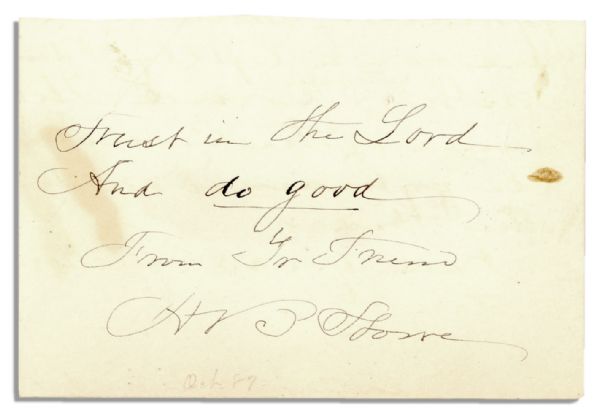 Trust in the Lord
And do good
From Yr Friend
H B Stowe
Oct 89